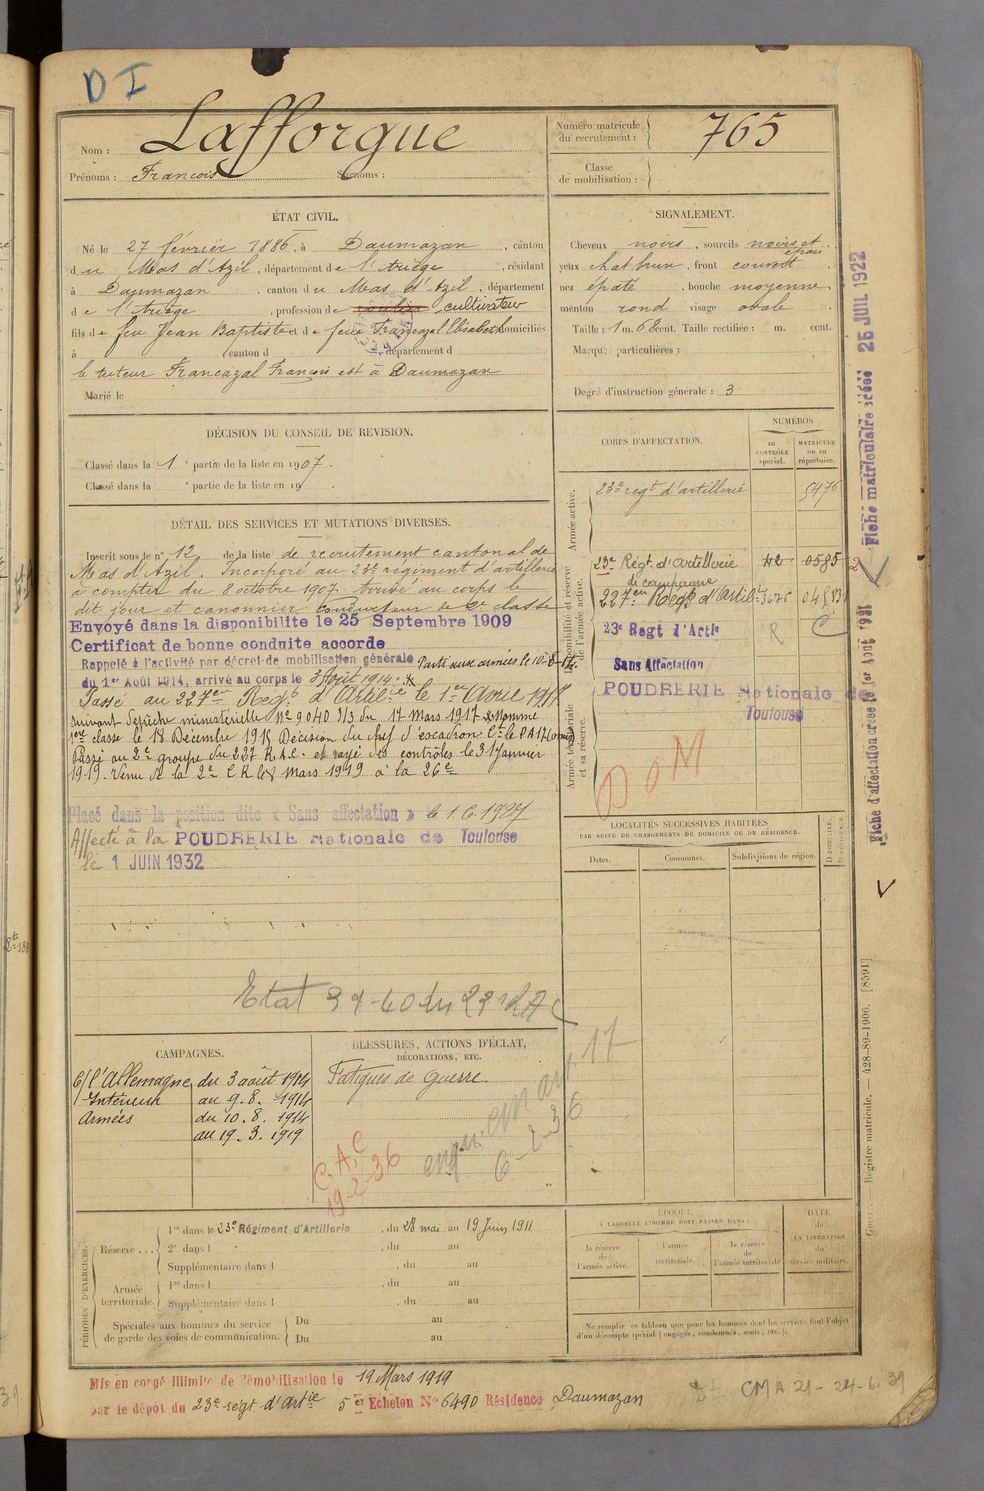 D I
Nom : Lafforgue
Prénoms : François Surnoms :
Numéro matricule du recrutement : 765
Classe de mobilisation :
ÉTAT CIVIL.
Né le 27 février 1886, à Daumazan, canton
du Mas d'Azil, département de l'Ariège, résidant
à Daumazan, canton du Mas d'Azil, département
de l'Ariège, profession de cultivateur
fils de feu Jean Baptiste et de feue Francazal Elisabeth domiciliés
à canton d département d
le tuteur Francazal François est à Daumazan
Marié le
SIGNALEMENT.
Cheveux noirs, sourcils noirs et épais
yeux chat brun, front couvert
nez épaté, bouche moyenne
menton rond visage ovale
Taille : 1 m. 68 cent. Taille rectifiée : m. cent.
Marques particulières :
Degré d'instruction générale : 3
DÉCISION DU CONSEIL DE REVISION.
Classé dans la 1e partie de la liste en 1907.
Classé dans la e partie de la liste en 19
DÉTAIL DES SERVICES ET MUTATIONS DIVERSES.
Inscrit sous le n° 12 de la liste de recrutement cantonal de
Mas d'Azil. Incorporé au 23e régiment d'artillerie
à compter du 8 octobre 1907. Arrivé au corps le
dit jour et canonnier conducteur de 2e classe
Envoyé dans la disponibilité le 25 Septembre 1909
Certificat de bonne conduite accordé
Rappelé à l'activité par décret de mobilisation générale Parti aux armées le 10-8-14.
du 1er Août 1914, arrivé au corps le 3 Août 1914.
Passé au 227em Regt d'Artilie le 1er Avril 1917
suivant dépêche ministérielle No 9040 3/3 du 17 Mars 1917 Nommé
1ere classe le 18 Décembre 1915 Décision du chef d'escadron Ct le PA 17
Passé au 2e groupe du 227 R.A.C. et rayé des contrôles le 31 Janvier
1919. Venu de la 2e C.R le 8 Mars 1919 à la 26e
Placé dans la position dite « Sans affectation » le 1.6.1927
Affecté à la POUDRERIE Nationale de Toulouse
le 1 JUIN 1932
Etat 39-40 du 23e RAC
CORPS D'AFFECTATION.
NUMÉROS
au CONTRÔLE spécial.
MATRICULE ou au répertoire.
Armée active.
23e regt d'artillerie 5476
Disponibilité et réserve de l'armée active.
23e Régt d'Artillerie de campagne 42 0585
227em Regt d'Artilie 3676
23e Regt d'Artie
R C
Sans Affectation
POUDRERIE Nationale de
Toulouse
Armée territoriale et sa réserve.
D O M
LOCALITÉS SUCCESSIVES HABITÉES
PAR SUITE DE CHANGEMENTS DE DOMICILE OU DE RÉSIDENCE.
Dates. Communes. Subdivisions de région.
CAMPAGNES.
C/ l'Allemagne du 3 août 1914
Intérieur au 9.8.1914
Armées du 10.8.1914
au 19.3.1919
BLESSURES, ACTIONS D'ÉCLAT,
DÉCORATIONS, ETC.
Fatigues de guerre.
C.A.C
19-2-36
6-2-36
17
PÉRIODES D'EXERCICES.
Réserve . . . 1re dans le 23e Régiment d'Artillerie, du 28 mai au 19 Juin 1911
2e dans l , du au
Supplémentaire dans l , du au
Armée territoriale. 1re dans l , du au
Supplémentaire dans l , du au
Spéciales aux hommes du service de garde des voies de communication. Du au
Du au
ÉPOQUE
À LAQUELLE L'HOMME DOIT PASSER DANS :
la réserve de l'armée active.
l'armée territoriale.
la réserve de l'armée territoriale
DATE de LA LIBÉRATION du service militaire.
Ne remplir ce tableau que pour les hommes dont les services font l'objet
d'un décompte spécial (engagés, condamnés, omis, etc.).
Mis en congé illimité de démobilisation le 19 Mars 1919
par le dépôt du 23e regt d'Artie 5er Echelon No 6490 Résidence Daumazan
CMA 21-24-6.39
Fiche matriculaire créée 25 JUIL 1922
Fiche d'affectation créée le 1er Août 1931
Registre matricule. — 428-89-1906. [8591]